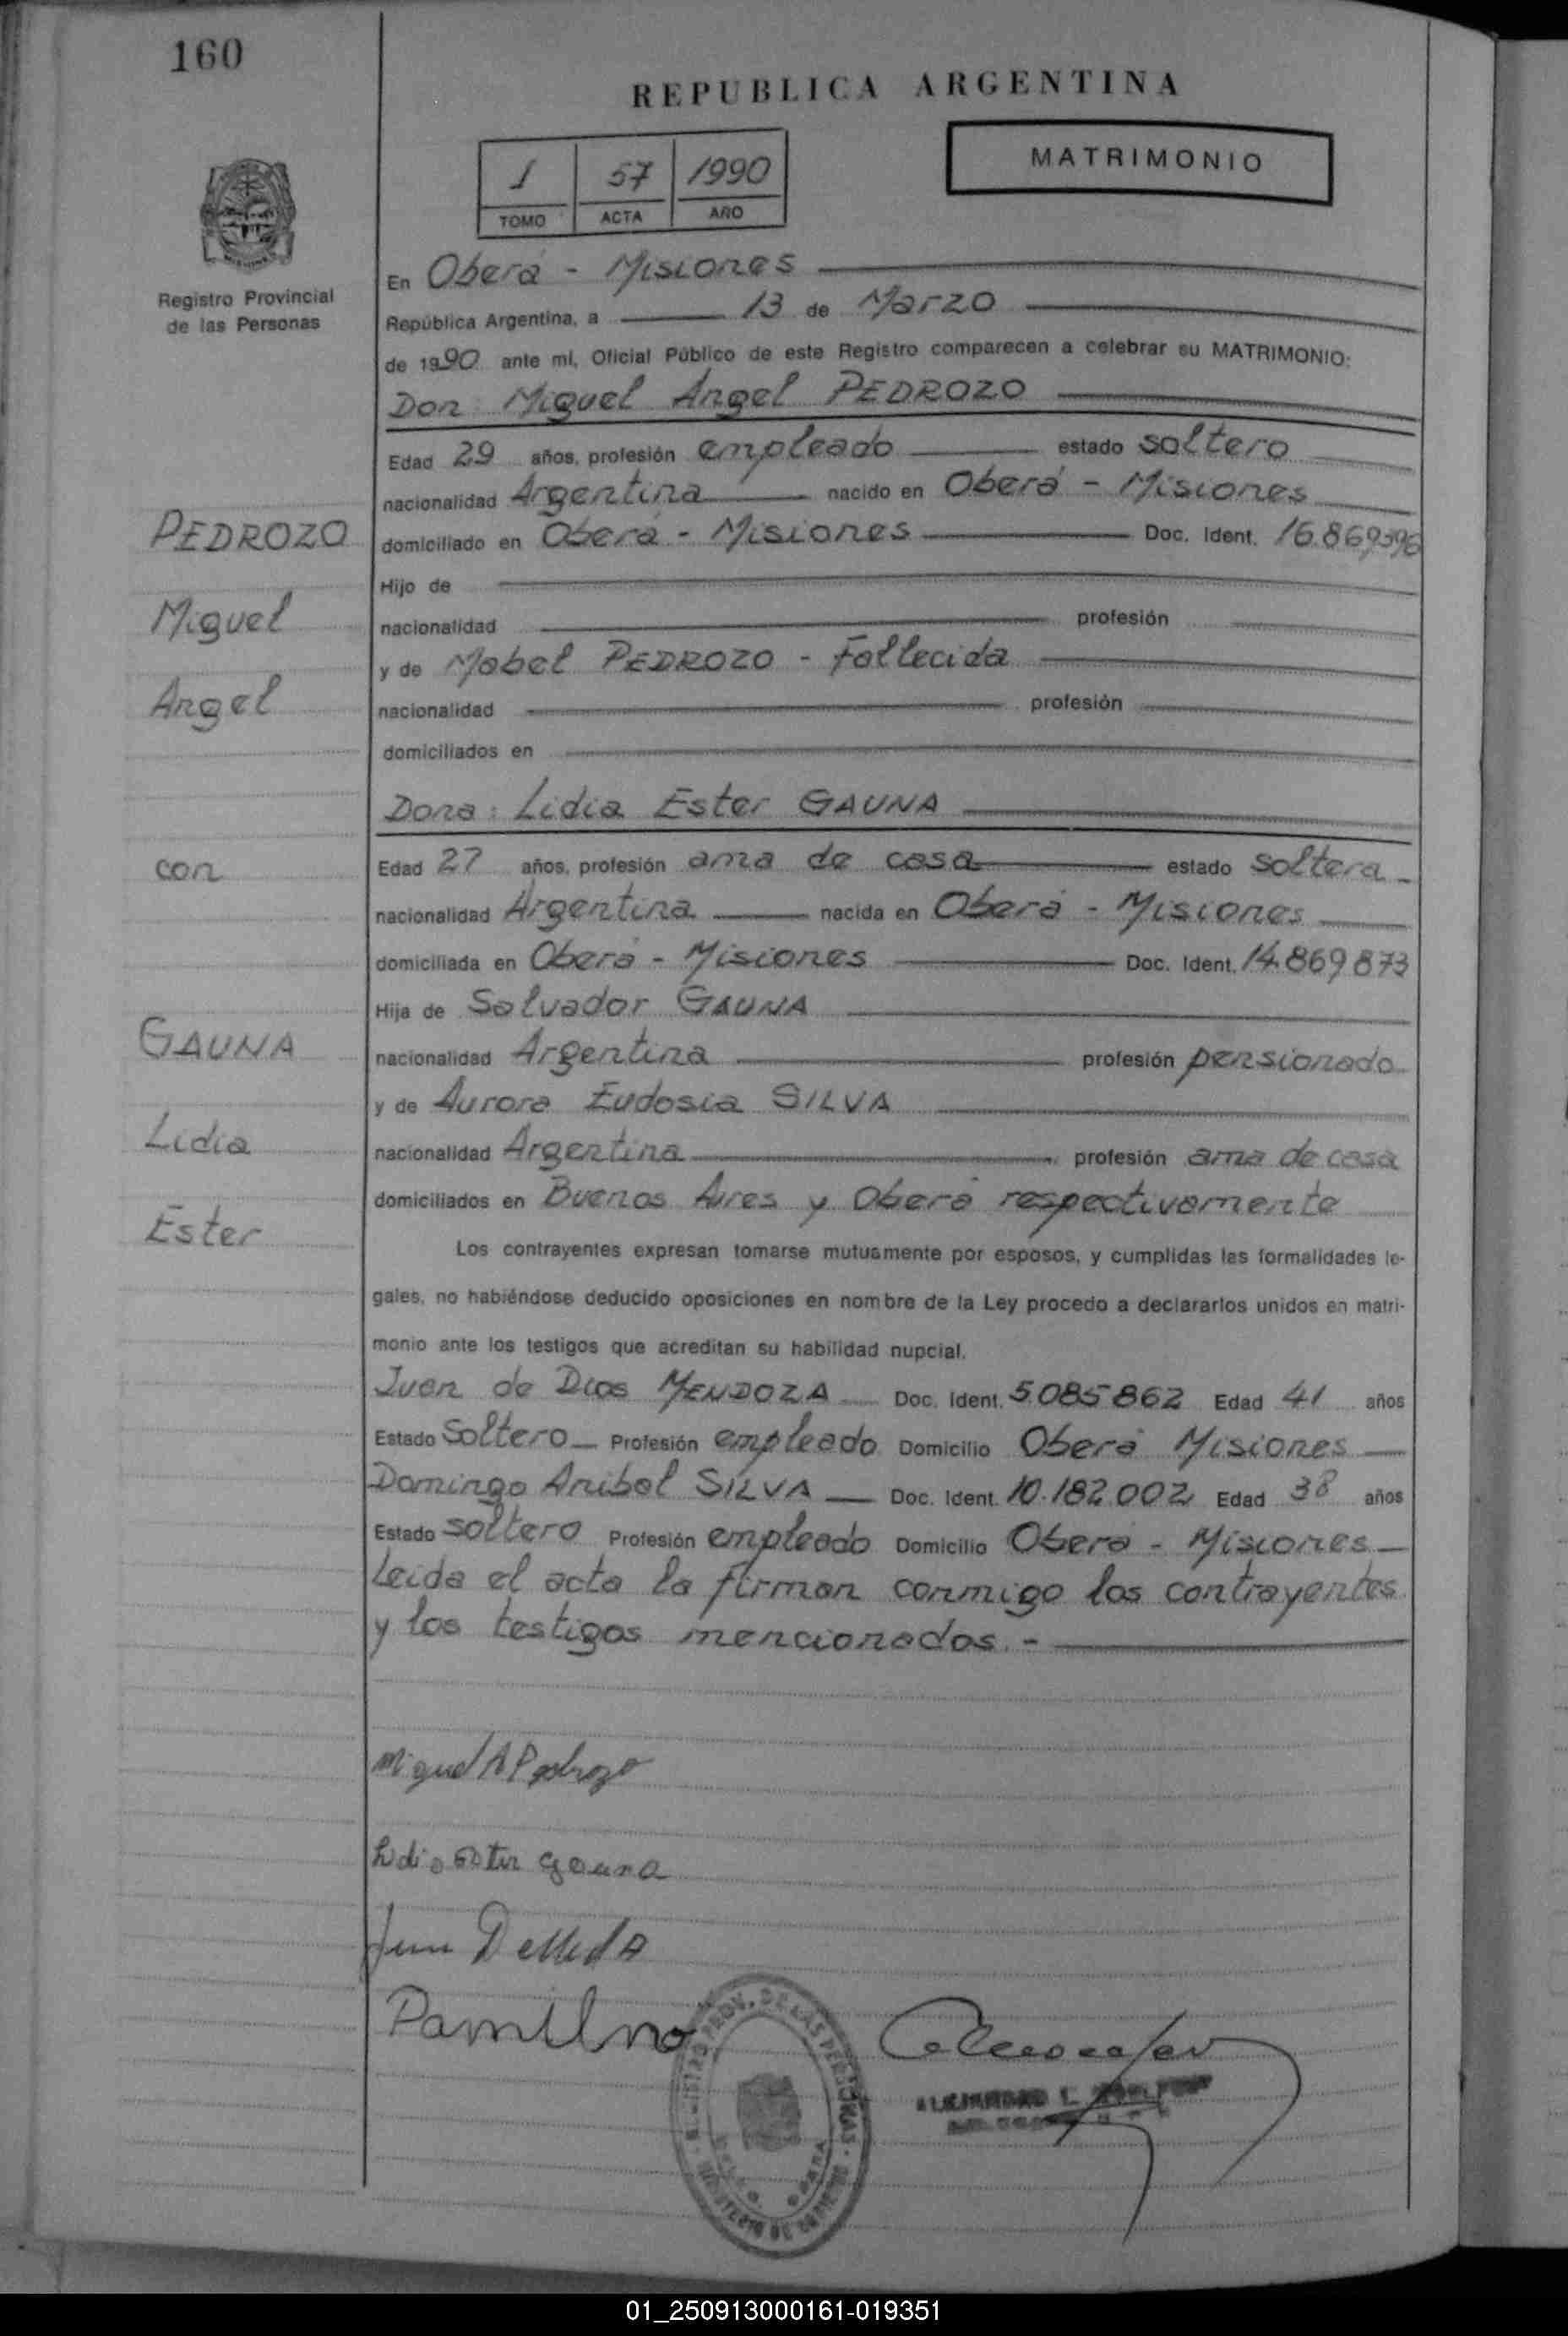 160
REPUBLICA ARGENTINA
MATRIMONIO
1 57 1990
TOMO ACTA AÑO
Registro Provincial
de las Personas
En Oberá - Misiones
República Argentina, a 13 de Marzo
de 1990 ante mí, Oficial Público de este Registro comparecen a celebrar su MATRIMONIO:
Don: Miguel Angel PEDROZO
Edad 29 años, profesión empleado estado soltero
nacionalidad Argentina nacido en Oberá - Misiones
domiciliado en Oberá - Misiones Doc. Ident. 16.869396
Hijo de
nacionalidad profesión
y de Mabel PEDROZO - Fallecida
nacionalidad profesión
domiciliados en
Dona: Lidia Ester GAUNA
Edad 27 años, profesión ama de casa estado soltera
nacionalidad Argentina nacida en Oberá - Misiones
domiciliada en Oberá - Misiones Doc. Ident. 14.869873
Hija de Salvador GAUNA
nacionalidad Argentina profesión pensionado
y de Aurora Eudosia SILVA
nacionalidad Argentina profesión ama de casa
domiciliados en Buenos Aires y Oberá respectivamente
Los contrayentes expresan tomarse mutuamente por esposos, y cumplidas las formalidades le-
gales, no habiéndose deducido oposiciones en nombre de la Ley procedo a declararlos unidos en matri-
monio ante los testigos que acreditan su habilidad nupcial.
Juan de Dios MENDOZA Doc. Ident. 5.085862 Edad 41 años
Estado Soltero Profesión empleado Domicilio Oberá Misiones
Domingo Anibal SILVA Doc. Ident. 10.182.002 Edad 38 años
Estado soltero Profesión empleado Domicilio Oberá - Misiones
Leida el acta la firman conmigo los contrayentes
y los testigos mencionados.-
PEDROZO
Miguel
Angel
con
GAUNA
Lidia
Ester
Miguel A Pedrozo
Lidia Ester Gauna
REGISTRO PROV. DE LAS PERSONAS
MINISTERIO DE GOBIERNO
01_250913000161-019351